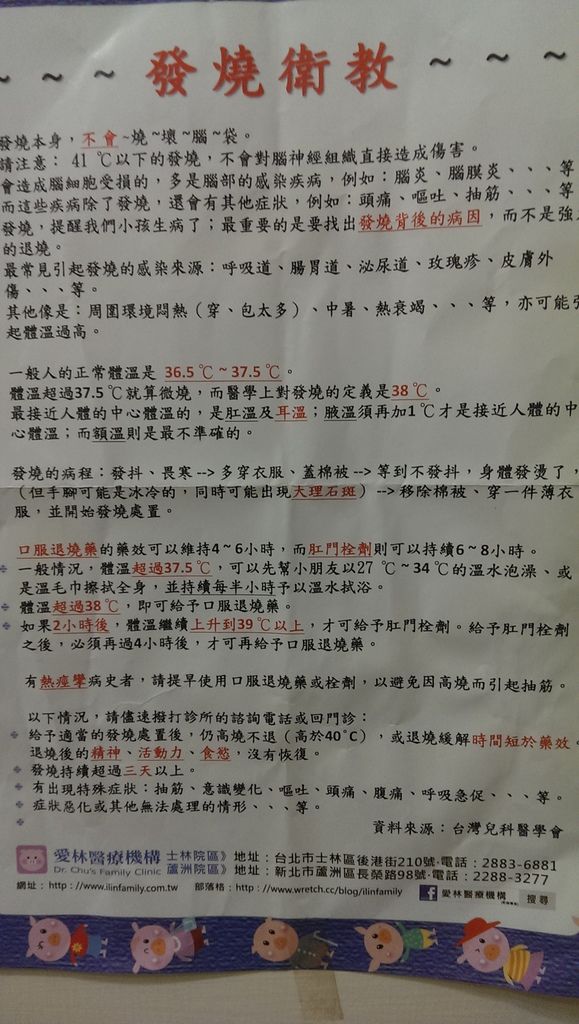 ~ ~ ~ 發燒衛教 ~ ~ ~
發燒本身，不會~燒~壞~腦~袋。
請注意： 41 ℃以下的發燒，不會對腦神經組織直接造成傷害。
會造成腦細胞受損的，多是腦部的感染疾病，例如：腦炎、腦膜炎、、、等
而這些疾病除了發燒，還會有其他症狀，例如：頭痛、嘔吐、抽筋、、、等
發燒，提醒我們小孩生病了；最重要的是要找出發燒背後的病因，而不是強
的退燒。
最常見引起發燒的感染來源：呼吸道、腸胃道、泌尿道、玫瑰疹、皮膚外
傷、、、等。
其他像是：周圍環境悶熱（穿、包太多）、中暑、熱衰竭、、、等，亦可能引
起體溫過高。
一般人的正常體溫是 36.5 ℃ ~ 37.5 ℃。
體溫超過37.5 ℃就算微燒，而醫學上對發燒的定義是38 ℃。
最接近人體的中心體溫的，是肛溫及耳溫；腋溫須再加1 ℃才是接近人體的中
心體溫；而額溫則是最不準確的。
發燒的病程：發抖、畏寒-->多穿衣服、蓋棉被-->等到不發抖，身體發燙了，
（但手腳可能是冰冷的，同時可能出現大理石斑）-->移除棉被、穿一件薄衣
服，並開始發燒處置。
口服退燒藥的藥效可以維持4～6小時，而肛門栓劑則可以持續6～8小時。
一般情況，體溫超過37.5℃，可以先幫小朋友以27 ℃～34℃的溫水泡澡、或
是溫毛巾擦拭全身，並持續每半小時予以溫水拭浴。
體溫超過38℃，即可給予口服退燒藥。
如果2小時後，體溫繼續上升到39℃以上，才可給予肛門栓劑。給予肛門栓劑
之後，必須再過4小時後，才可再給予口服退燒藥。
有熱痙攣病史者，請提早使用口服退燒藥或栓劑，以避免因高燒而引起抽筋。
以下情況，請儘速撥打診所的諮詢電話或回門診：
給予適當的發燒處置後，仍高燒不退（高於40˚C），或退燒緩解時間短於藥效。
退燒後的精神、活動力、食慾，沒有恢復。
發燒持續超過三天以上。
有出現特殊症狀：抽筋、意識變化、嘔吐、頭痛、腹痛、呼吸急促、、、等。
症狀惡化或其他無法處理的情形、、、等。
資料來源：台灣兒科醫學會
愛林醫療機構 士林院區》 地址：台北市士林區後港街210號‧電話：2883-6881
Dr. Chu's Family Clinic 蘆洲院區》 地址：新北市蘆洲區長榮路98號‧電話：2288-3277
網址：http://www.ilinfamily.com.tw 部落格：http://www.wretch.cc/blog/ilinfamily f 愛林醫療機構 搜尋